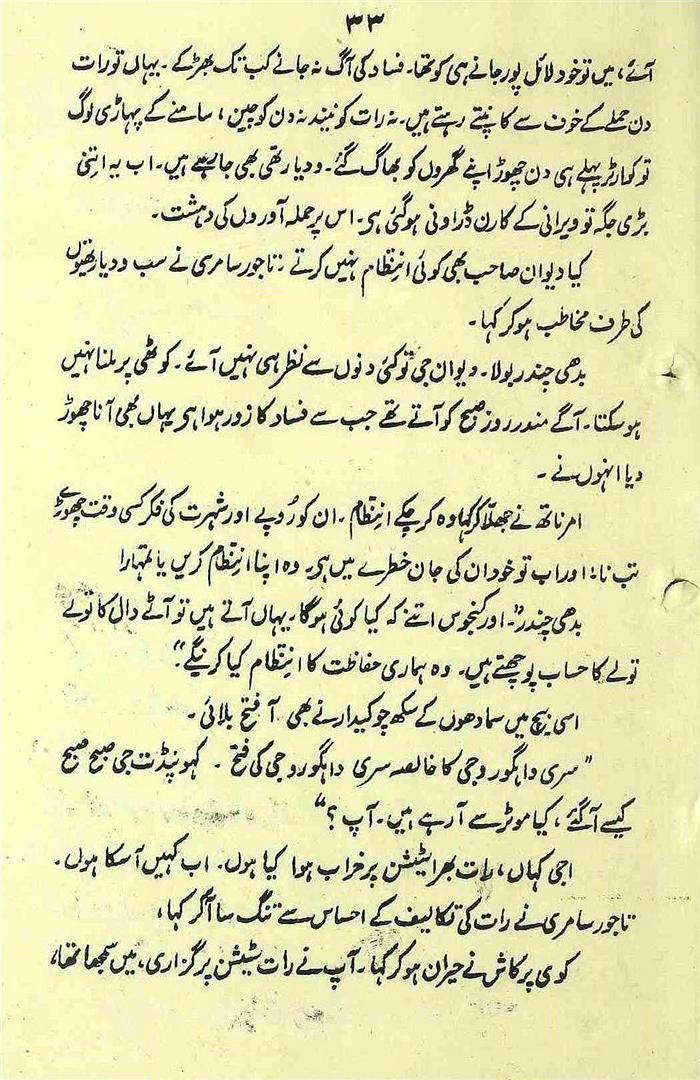 ۳۳
آئے، میں تو خود لائل پور جانے ہی کو تھا۔ فساد کی آگ نہ جانے کب تک بھڑکے۔ یہاں تو رات
دن حملے کے خوف سے کانپتے رہتے ہیں۔ نہ رات کو نیند نہ دن کو چین، سامنے کے پہاڑی لوگ
تو کوارٹر پہلے ہی دن چھوڑ اپنے گھروں کو بھاگ گئے۔ ودیارتھی بھی جا رہے ہیں۔ اب یہ اتنی
بڑی جگہ تو ویرانی کے کارن ڈراونی ہو گئی ہی۔ اس پر حملہ آوروں کی دہشت۔
کیا دیوان صاحب بھی کوئی انتظام نہیں کرتے: تاجور سامری نے سب ودیارتھیوں
کی طرف مخاطب ہو کر کہا۔
بدھی چندر بولا۔ دیوان جی تو کئی دنوں سے نظر ہی نہیں آئے۔ کوٹھی پر ملنا نہیں
ہو سکتا۔ آگے مندر روز صبح کو آتے تھے جب سے فساد کا زور ہوا ہی یہاں بھی آنا چھوڑ
دیا انہوں نے۔
امرناتھ نے جھلّا کر کہا وہ کر چکے انتظام۔ ان کو رُوپے اور شہرت کی فکر کسی وقت چھوڑے
تب نا: اور اب تو خود ان کی جان خطرے میں ہی۔ وہ اپنا انتظام کریں یا تمہارا
بدھی چندر"۔ اور کنجوس اتنے کہ کیا کوئی ہوگا۔ یہاں آتے ہیں تو آٹے دال کا تولے
تولے کا حساب پوچھتے ہیں۔ وہ ہماری حفاظت کا انتظام کیا کرینگے"۔
اسی بیچ میں سمادھوں کے سکھ چوکیدار نے بھی آ فتح بلائی۔
"سری واہگوروجی کا خالصہ سری واہگوروجی کی فتح۔ کہو پنڈت جی صبح صبح
کیسے آ گئے، کیا موٹر سے آ رہے ہیں۔ آپ؟"
اجی کہاں، رات بھر اسٹیشن پر خراب ہوا کیا ہوں۔ اب کہیں آ سکا ہوں۔
تاجور سامری نے رات کی تکالیف کے احساس سے تنگ سا آ کر کہا،
کوی پرکاش نے حیران ہو کر کہا۔ آپ نے رات سٹیشن پر گزاری، میں سمجھا تھا،